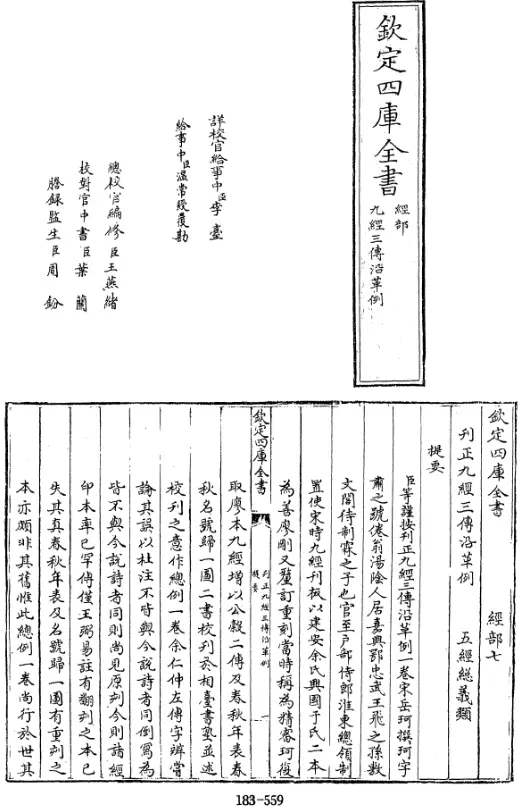 欽定四庫全書
經部
九經三傳沿革例
詳校官給事中臣李臺
給事中臣溫常綬覆勘
總校官編修臣王燕緒
校對官中書臣葉蘭
謄錄監生臣周鈖
欽定四庫全書　經部七
刊正九經三傳沿革例　五經總義類
提要
臣等謹按刊正九經三傳沿革例一卷宋岳珂撰珂字
肅之號倦翁湯陰人居嘉興鄂忠武王飛之孫敷
文閣待制霖之子也官至戶部侍郎淮東總領制
置使宋時九經刊板以建安余氏興國于氏二本
為善廖剛又釐訂重刻當時稱為精審珂復
欽定四庫全書
刊正九經三傳沿革例
提要
一
取廖本九經增以公穀二傳及春秋年表春
秋名號歸一圖二書校刊於相臺書塾並述
校刊之意作總例一卷余仁仲左傳字辨嘗
論其誤以杜注不皆與今說詩者同倒寫為
皆不與今說詩者同則尚見原刻今則諸經
印本率已罕傳僅王弼易註有翻刻之本已
失其真春秋年表及名號歸一圖有重刻之
本亦頗非其舊惟此總例一卷尚行於世其
183-559